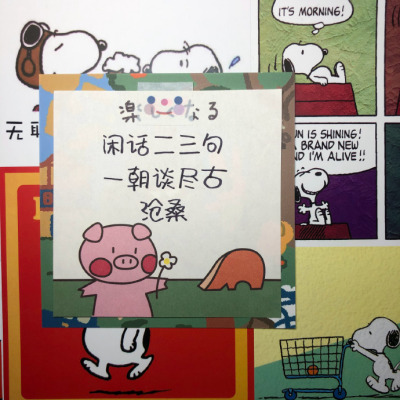 IT'S MORNING!
楽しくなる
闲话二三句
一朝谈尽古
沧桑
无
SUN IS SHINING!
BRAND NEW
AND I'M ALIVE!!